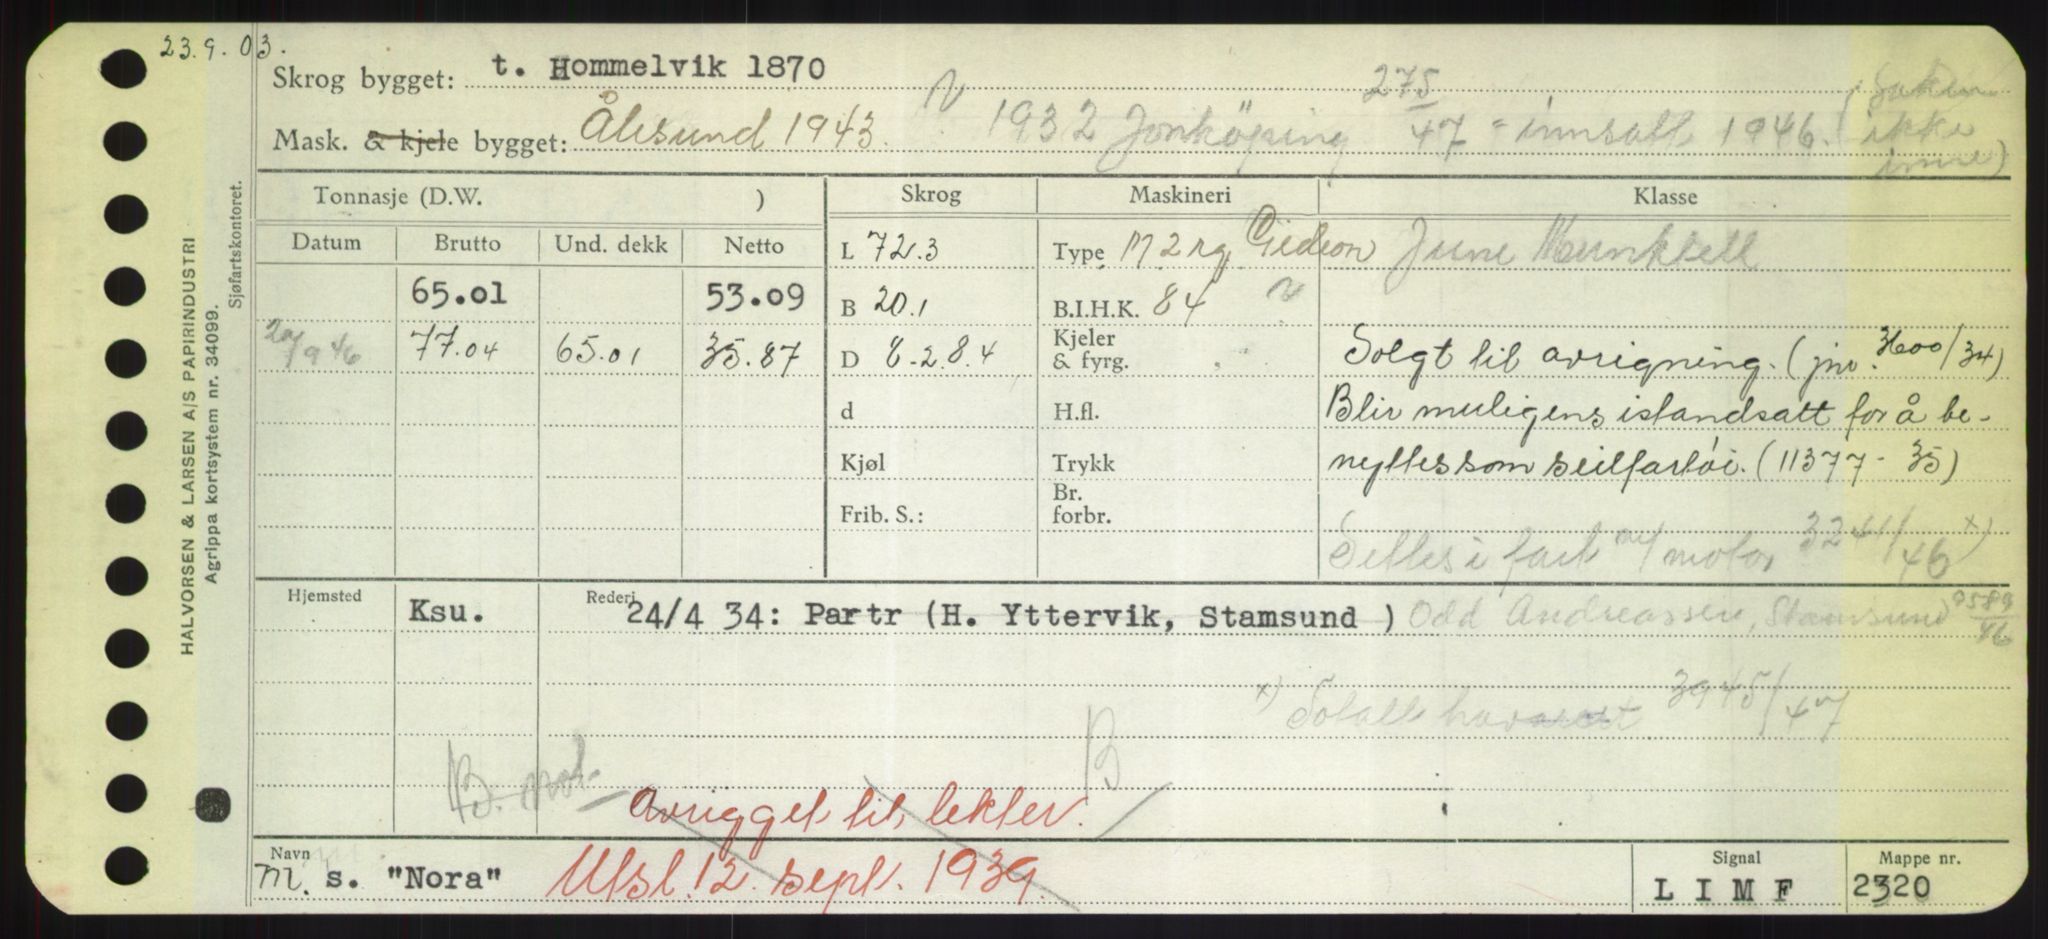 23.9.03.
Skrog bygget: t. Hommelvik 1870
Mask. & kjele bygget: Ålesund 1943. 1932 Jonköping 275/47 = innsatt 1946. (Saken ikke inne)
Tonnasje (D.W. ) Skrog Maskineri Klasse
Datum Brutto Und. dekk Netto L 72.3 Type M 2 rg Gideon June Munktell
65.01 53.09 B 20.1 B.I.H.K. 84
20/9 46 77.04 65.01 35.87 D 8.-2.8.4 Kjeler & fyrg. Solgt til avrigning. (jnr. 3600/34)
d H.fl. Blir muligens istandsatt for å be-
Kjøl Trykk nyttes som seilfartøi. (11377-35)
Frib. S.: Br. forbr.
Settes i fart m/ motor 3241/46 x)
Hjemsted Ksu. Rederi 24/4 34: Partr (H. Yttervik, Stamsund ) Odd Andreassen, Stamsund 9589/46
x) Totalt havarert 3945/47
B. mot. B
Avrigget til lekter.
Navn m. s. "Nora" Utsl. 12. sept. 1939. Signal LIMF Mappe nr. 2320
HALVORSEN & LARSEN A/S PAPIRINDUSTRI
Agrippa kortsystem nr. 34099.
Sjøfartskontoret.